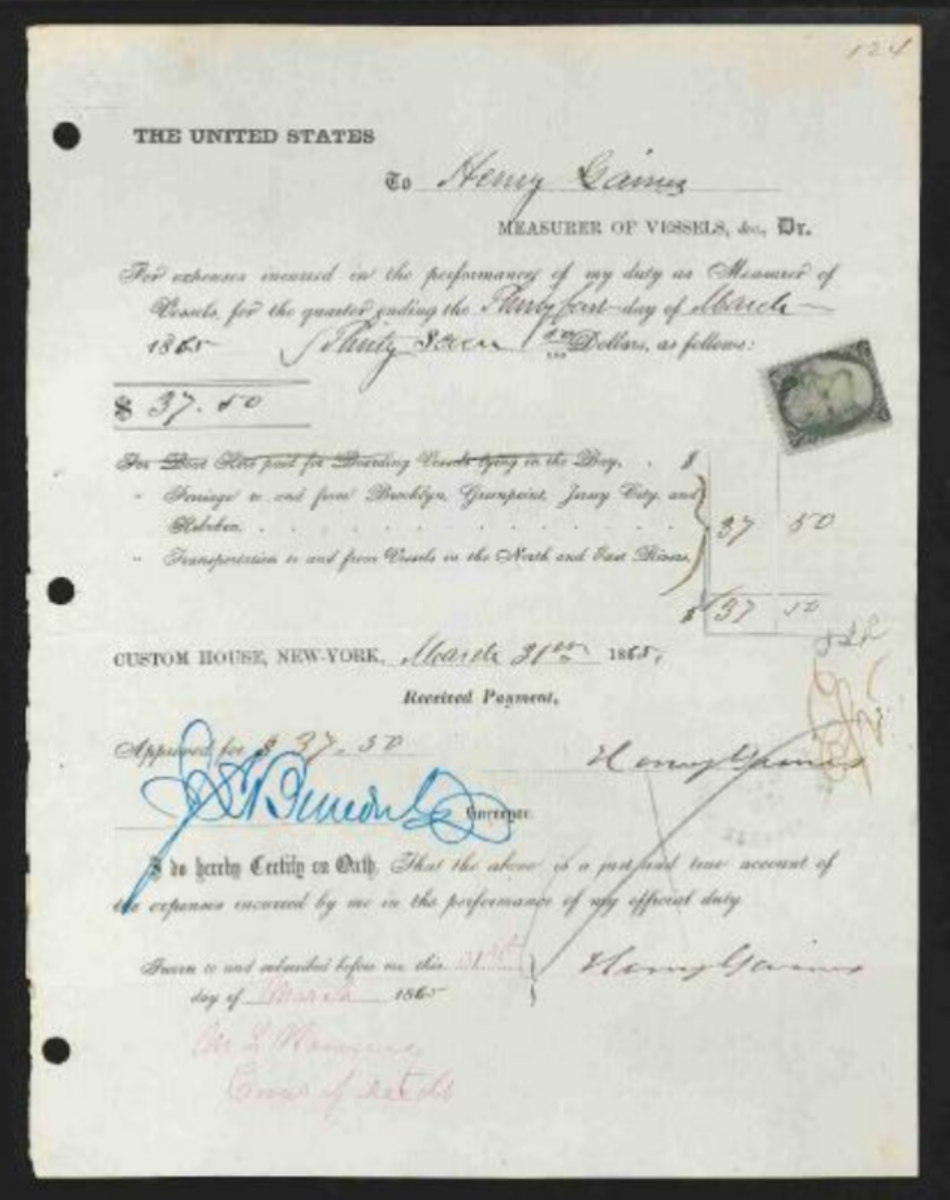 124
THE UNITED STATES
To Henry Gaines
MEASURER OF VESSELS, &c., Dr.
For expenses incurred in the performance of my duty as Measurer of
Vessels, for the quarter ending the Thirty first day of March
1865 Thirty Seven 50/100 Dollars, as follows:
$ 37.50
For Boat Hire paid for Boarding Vessels lying in the Bay, . $
" Ferriage to and from Brooklyn, Greenpoint, Jersey City, and
Hoboken. 37 50
" Transportation to and from Vessels in the North and East Rivers,
$ 37 50
CUSTOM HOUSE, NEW-YORK, March 31st 1865,
Received Payment,
Approved for $ 37.50
Henry Gaines
Surveyor.
I do hereby Certify on Oath, That the above is a just and true account of
the expenses incurred by me in the performance of my official duty
Sworn to and subscribed before me this 31st
Henry Gaines
day of March 1865